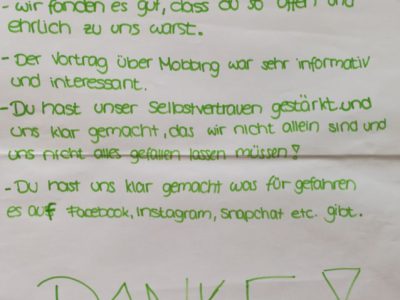 - wir fanden es gut, dass du so offen und
ehrlich zu uns warst.
- Der Vortrag über Mobbing war sehr informativ
und interessant.
- Du hast unser Selbstvertrauen gestärkt und
uns klar gemacht, das wir nicht allein sind und
uns nicht alles gefallen lassen müssen!
- Du hast uns klar gemacht was für gefahren
es auf Facebook, Instagram, Snapchat etc. gibt.
DANKE!